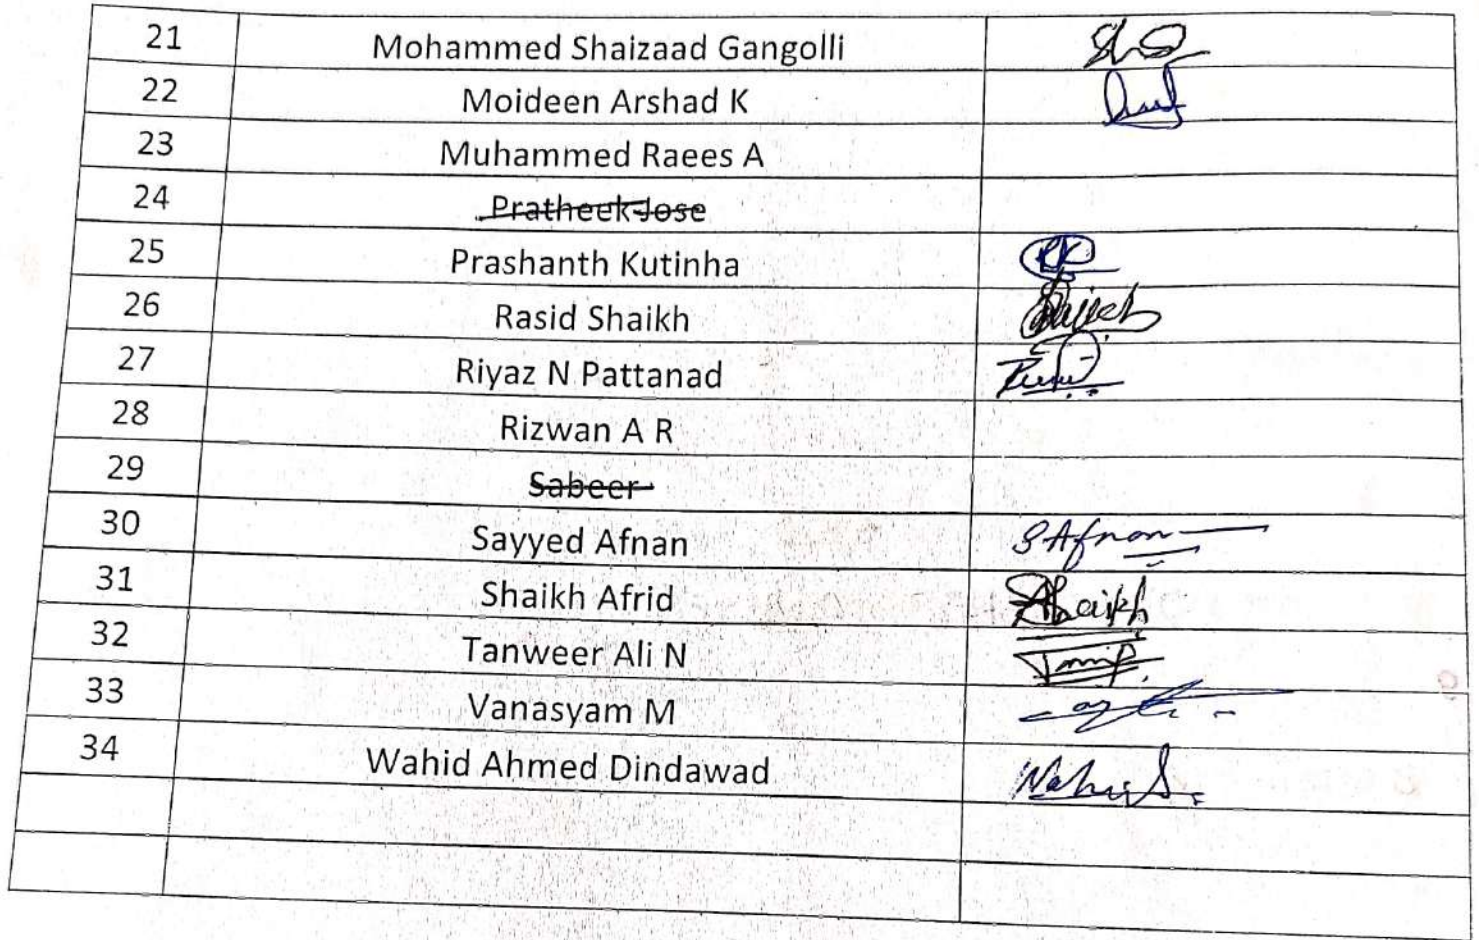 21 Mohammed Shaizaad Gangolli
22 Moideen Arshad K
23 Muhammed Raees A
24 Pratheek Jose
25 Prashanth Kutinha
26 Rasid Shaikh
27 Riyaz N Pattanad
28 Rizwan A R
29 Sabeer
30 Sayyed Afnan S Afnan
31 Shaikh Afrid Shaikh
32 Tanweer Ali N
33 Vanasyam M
34 Wahid Ahmed Dindawad